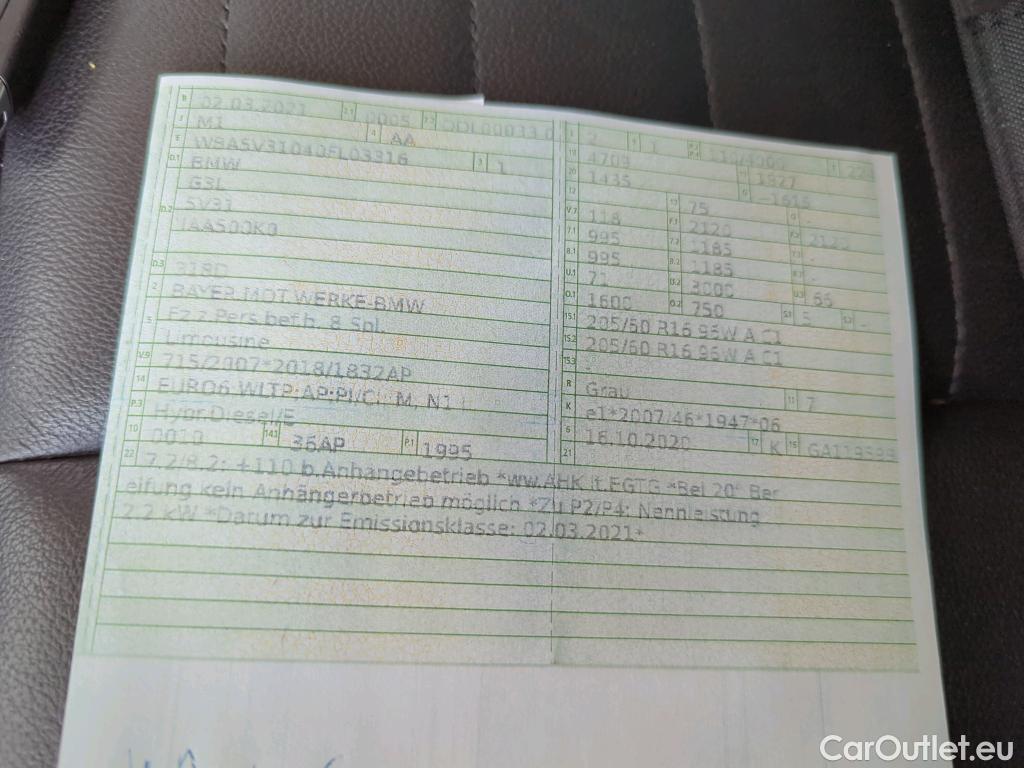 B 02.03.2021 2.1 0005 2.2
J M1 4 AA
E 3 1
D.1 BMW
G3L
D.2 5V31
D.3 318D
2 BAYER.MOT.WERKE-BMW
Fz.z.Pers.bef.b. 8 Spl.
5 Limousine
V.9 715/2007*2018/1832AP
14 EURO6 WLTP
P.3 Hybr.Diesel/E
10 0010 14.1 36AP P.1 1995
L 2 9 1 P.2 P.4 110/4000 T
18 4709 19 1827
20 1435 G -1615
12 13 75 Q -
V.7 118 F.1 2120 F.2 2120
7.1 995 7.2 1185 7.3 -
8.1 995 8.2 1185 8.3 -
U.1 71 U.2 3000 U.3 66
O.1 1600 O.2 750 S.1 5 S.2 -
15.1 205/60 R16 96W A C1
15.2 205/60 R16 96W A C1
15.3 -
R Grau 11 7
K e1*2007/46*1947*06
6 16.10.2020 17 K 16
21
22 7.2/8.2: +110 b.Anhängebetrieb *ww.AHK lt.EGTG *Bei 20" Ber
eifung kein Anhängerbetrieb möglich *Zu P2/P4: Nennleistung
2.2 kW *Datum zur Emissionsklasse: 02.03.2021*
CarOutlet.eu